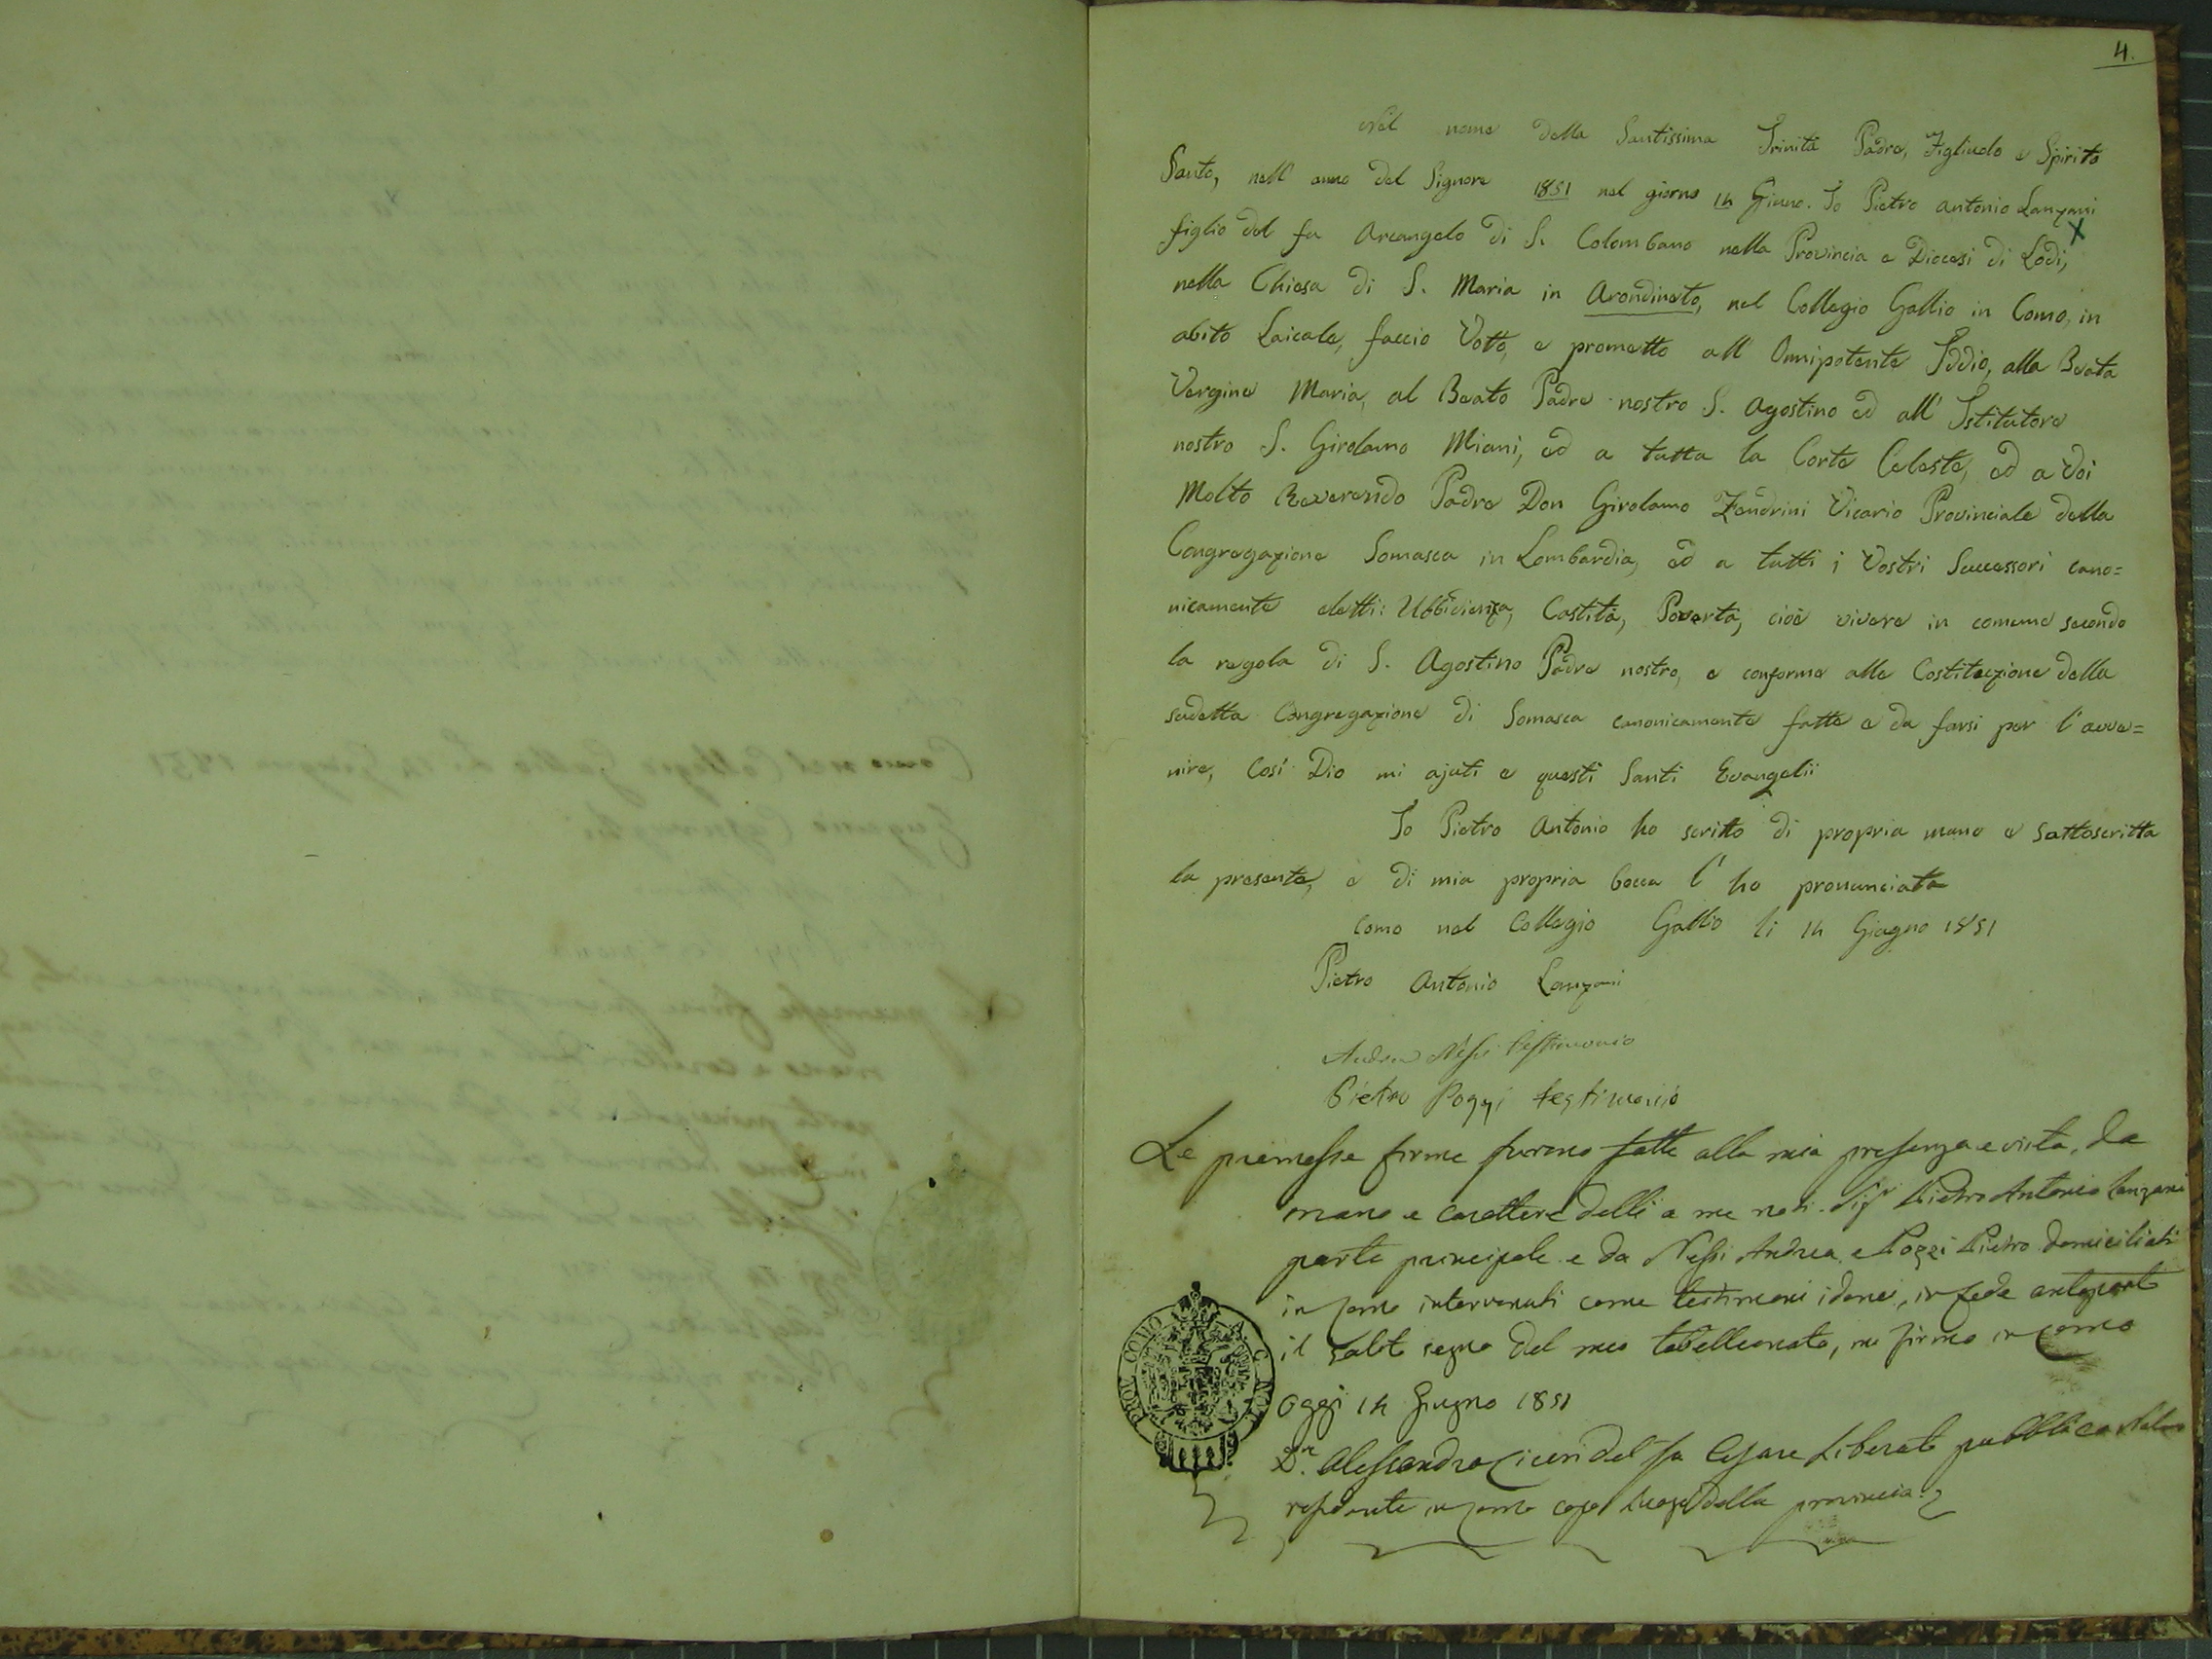 4.
Nel nome della Santissima Trinità Padre, Figliuolo e Spirito
Santo, nell' anno del Signore 1851 nel giorno 14 Giuno. Io Pietro Antonio Lanzani
X
figlio del fu Arcangelo di S. Colombano nella Provincia e Diocesi di Lodi,
nella Chiesa di S. Maria in Arondineto, nel Collegio Gallio in Como, in
abito Laicale, faccio Votto, e prometto all' Omnipotente Iddio, alla Beata
Vergine Maria, al Beato Padre nostro S. Agostino ed all' Istitutore
nostro S. Girolamo Miani, ed a tutta la Corte Celeste, ed a Voi
Molto Reverendo Padre Don Girolamo Zendrini Vicario Provinciale della
Congregazione Somasca in Lombardia, ed a tutti i Vostri Successori cano=
nicamente eletti: Ubbidienza, Castità, Povertà, cioè vivere in comune secondo
la regola di S. Agostino Padre nostro, e conforme alle Costituzione della
sudetta Congregazione di Somasca canonicamente fatte e da farsi per l' avve=
nire, Così Dio mi ajuti e questi Santi Evangelii
Io Pietro Antonio ho scritto di propria mano e sottoscritta
la presente, e di mia propria bocca l' ho pronunciata
Como nel Collegio Gallio li 14 Giugno 1851
Pietro Antonio Lanzani
Andrea Nessi testimonio
Pietro Poggi testimonio
Le premesse firme furono fatte alla mia presenza e vista, da
mano e carattere delli a me noti Sigr Pietro Antonio Lanzani
parte principale e da Nessi Andrea e Poggi Pietro domiciliati
in Como intervenuti come testimoni idonei, in fede anteposto
il solito segno del mio tabellionato, mi firmo in Como
Oggi 14 Giugno 1851
Dr. Alessandro Ciceri del fu Cesare Liberato pubblico Notaro
residente in Como capo luogo della provincia